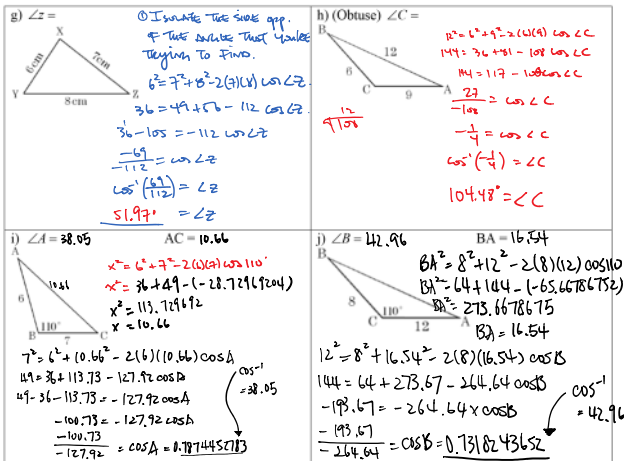 g) ∠z =
① Isolate the side opp.
of the angle that you're
trying to find.
X
6cm
7cm
Y
8cm
Z
6² = 7² + 8² - 2(7)(8) cos∠z
36 = 49 + 56 - 112 cos∠z
36 - 105 = -112 cos∠z
-69/-112 = cos∠z
cos⁻¹(69/112) = ∠z
51.97° = ∠z
h) (Obtuse) ∠C =
B
12
6
C
9
A
12/108
12² = 6² + 9² - 2(6)(9) cos∠C
144 = 36 + 81 - 108 cos∠C
144 = 117 - 108 cos∠C
27/-108 = cos∠C
-1/4 = cos∠C
cos⁻¹(-1/4) = ∠C
104.48° = ∠C
i) ∠A = 38.05 AC = 10.66
A
6
10.66
B
110°
7
C
x² = 6² + 7² - 2(6)(7) cos 110°
x² = 36 + 49 - (-28.72969204)
x² = 113.729692
x = 10.66
7² = 6² + 10.66² - 2(6)(10.66) cosA
49 = 36 + 113.73 - 127.92 cosA
49 - 36 - 113.73 = -127.92 cosA
-100.73 = -127.92 cosA
-100.73/-127.92 = cosA = 0.7874452783
cos⁻¹
= 38.05
j) ∠B = 42.96 BA = 16.54
B
8
C
110°
12
A
BA² = 8² + 12² - 2(8)(12) cos110
BA² = 64 + 144 - (-65.66786752)
BA² = 273.6678675
BA = 16.54
12² = 8² + 16.54² - 2(8)(16.54) cosB
144 = 64 + 273.67 - 264.64 cosB
-193.67 = -264.64 x cosB
-193.67/-264.64 = cosB = 0.7318243652
cos⁻¹
= 42.96